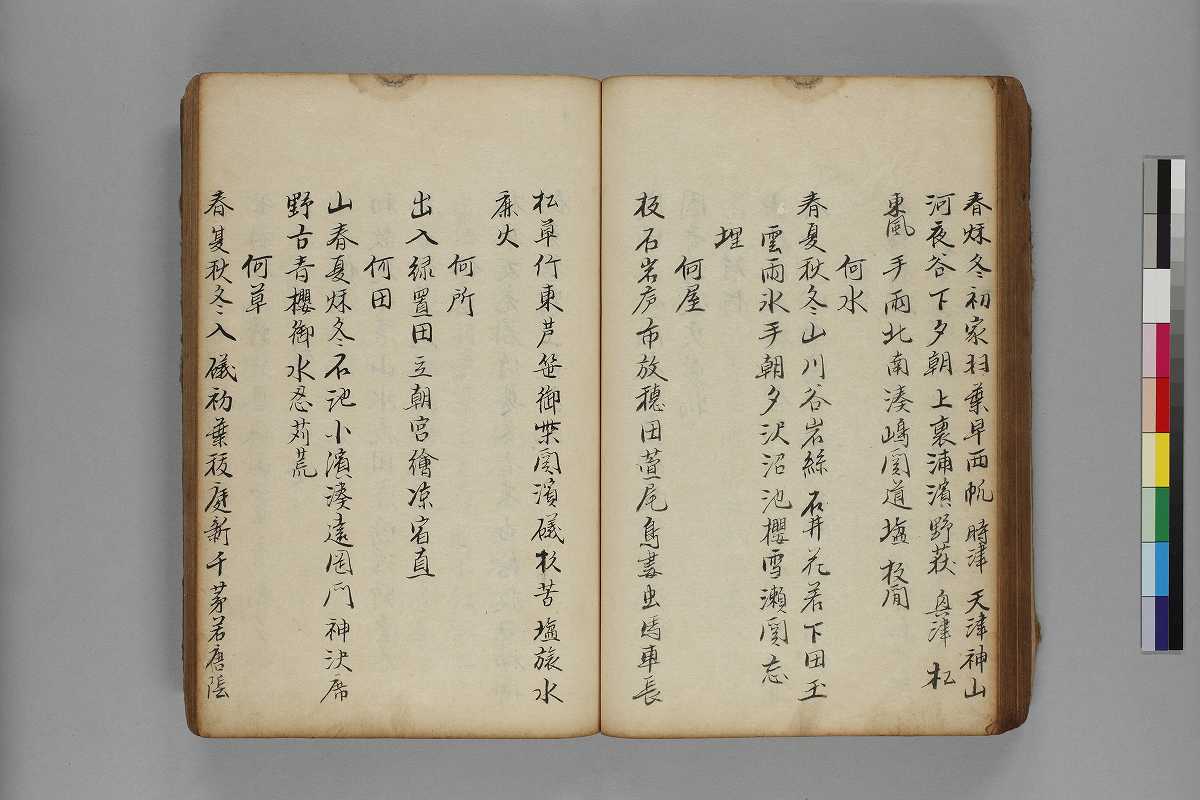 春秌冬初家羽葉早西帆時津天津神山
河夜谷下夕朝上裏浦濱野荻奥津松
東風手雨北南湊嶋関道塩板間
何水
春夏秋冬山川谷岩絲石井花若下田玉
雲雨氷手朝夕沢沼池櫻雪瀬関忘
埋
何屋
板石岩庐布放穂田萱尾鳥虫馬車長
松草竹東芦笹御柴関濱礒杉苫塩旅水
藻火
何所
出入緑置田立朝宮繪凉宿直
何田
山春夏秌冬石池小濱湊遠岡門神沢席
野古青櫻御水忍苅荒
何草
春夏秋冬入礒初葉枝庭新千茅若唐陰